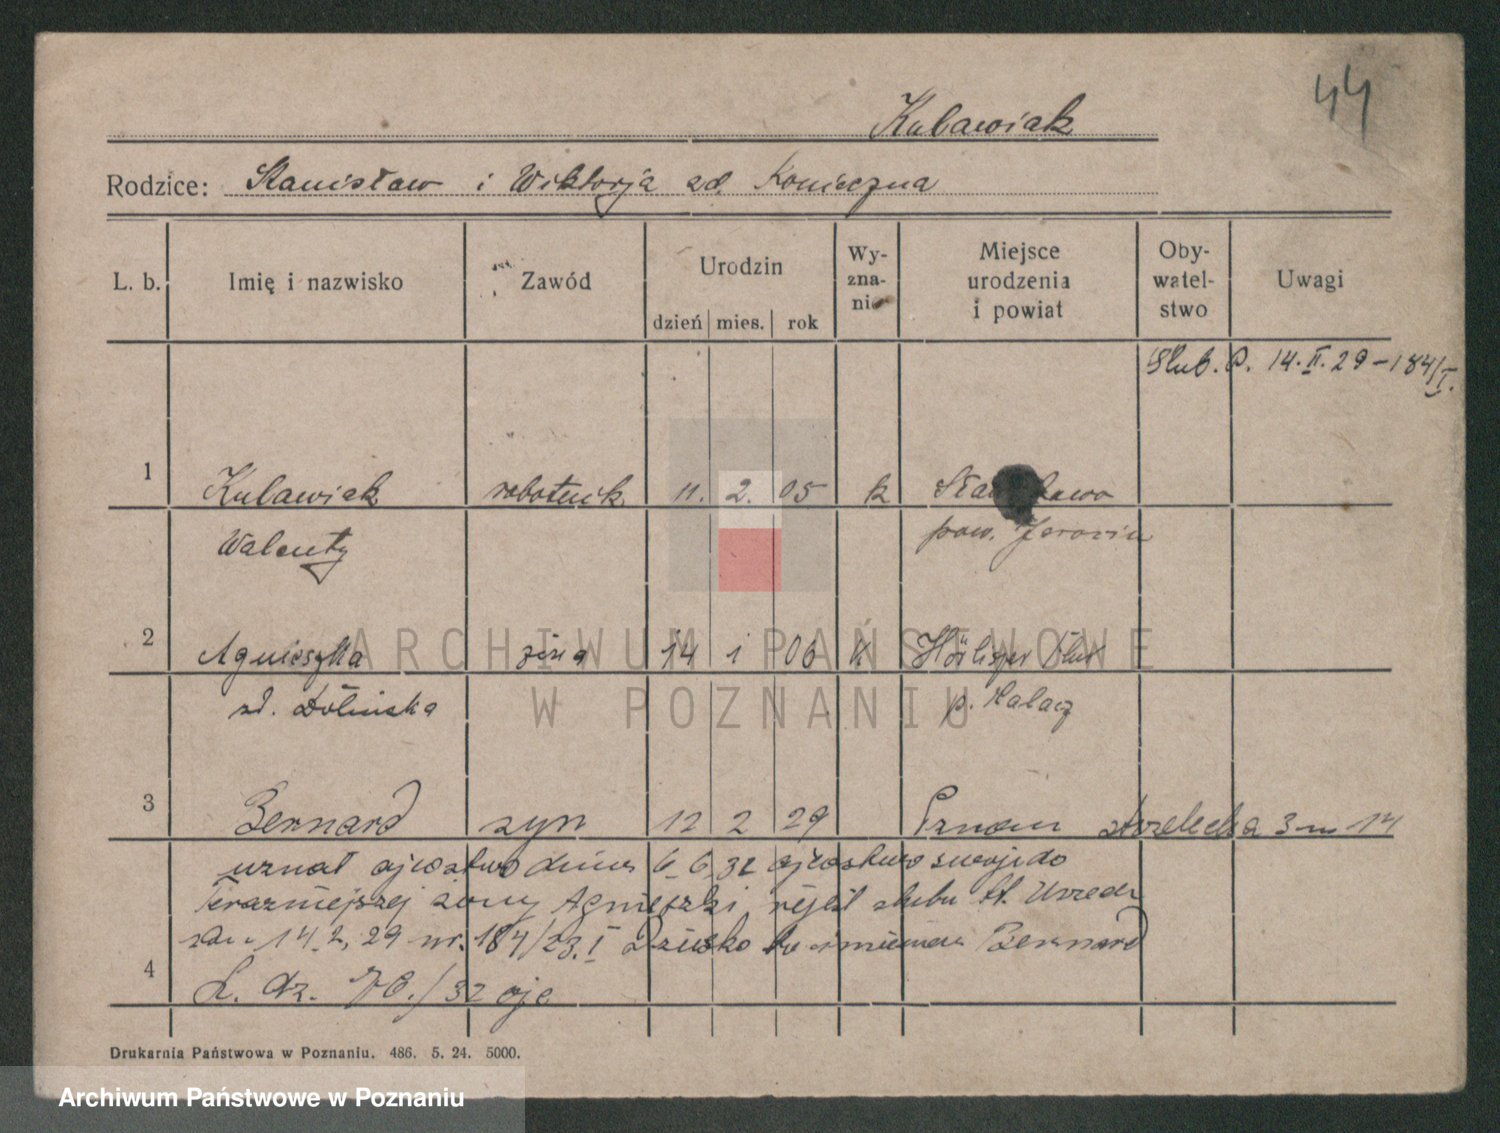 44
Kulawiak
Rodzice: Stanisław i Wiktorja zd Konieczna
L. b. Imię i nazwisko Zawód Urodzin dzień mies. rok Wy-zna-nie Miejsce urodzenia i powiat Oby-watel-stwo Uwagi
Ślub. P. 14. II. 29 – 184/I.
1 Kulawiak robotnik 11. 2. 05 k
Walenty pow. Jarocin
2 Agnieszka żona 14 1 06 k
zd. Dolińska p.
3 Bernard syn 12 2 29 Poznań strzelecka 3 m 14
uznał ojcostwo dnia 6. 6. 32 ojcostwo swojido
Terazniejszej żony Agnieszki, rejest ślubu St. Urzędu
14. 2. 29 nr. 184/23. I Dziecko to imieniem Bernard
4 L. dz. /32 ojc
Drukarnia Państwowa w Poznaniu. 486. 5. 24. 5000.
ARCHIWUM PAŃSTWOWE
W POZNANIU
Archiwum Państwowe w Poznaniu